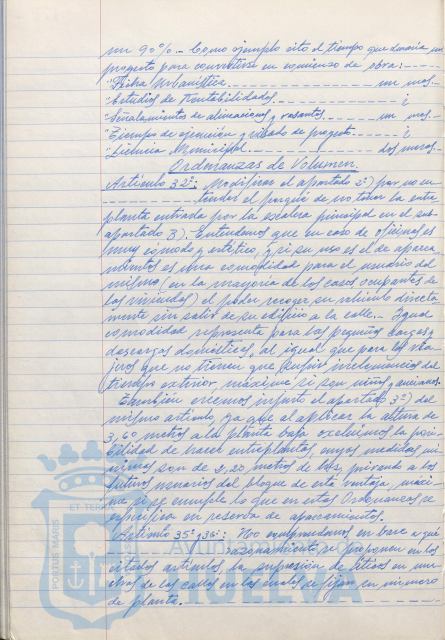 un 90%.- Como ejemplo cito el tiempo que duraría un
proyecto para convertirse en comienzo de obra:
"Ficha Urbanística. un mes.
"Estudios de Rentabilidades. ¿
"Señalamiento de alineaciones y rasantes. un mes.
"Tiempo de ejecución y visado de proyecto. ¿
"Licencia Municipal. dos meses.
Ordenanzas de Volumen.
Artículo 32º: Modificar el apartado 2º) por no en
tender el porqué de no tener la entre
planta entrada por la escalera principal en el sub-
apartado 3). Entendemos que en caso de oficinas es
muy cómodo y estético, y si su uso es el de aparca
mientos es una comodidad para el usuario del
mismo (en la mayoría de los casos ocupantes de
las viviendas) el poder recoger su vehículo directa
mente sin salir de su edificio a la calle. Igual
comodidad representa para las pequeñas cargas y
descargas domésticas, al igual que para los via
jeros que no tienen que sufrir inclemencias del
tiempo exterior, máxime si son niños y ancianos.
También creemos injusto el apartado 3º) del
mismo artículo, ya que al aplicar la altura de
3,60 metros a la planta baja excluimos la posi
bilidad de hacer entreplantas, cuyas medidas mí
nimas son de 2,20 metros de luz, privando a los
futuros usuarios del bloque de esta ventaja, máxi
me si se cumple lo que en estas Ordenanzas se
especifica en reserva de aparcamientos.
Artículo 35º y 36º: No comprendemos en base a qué
razonamiento, se proponen en los
citados artículos, la supresión de áticos en mu
chas de las calles en las cuales se fijan en número
de planta.
PORTUS MARIS
ET TERR
AYU
HUELVA